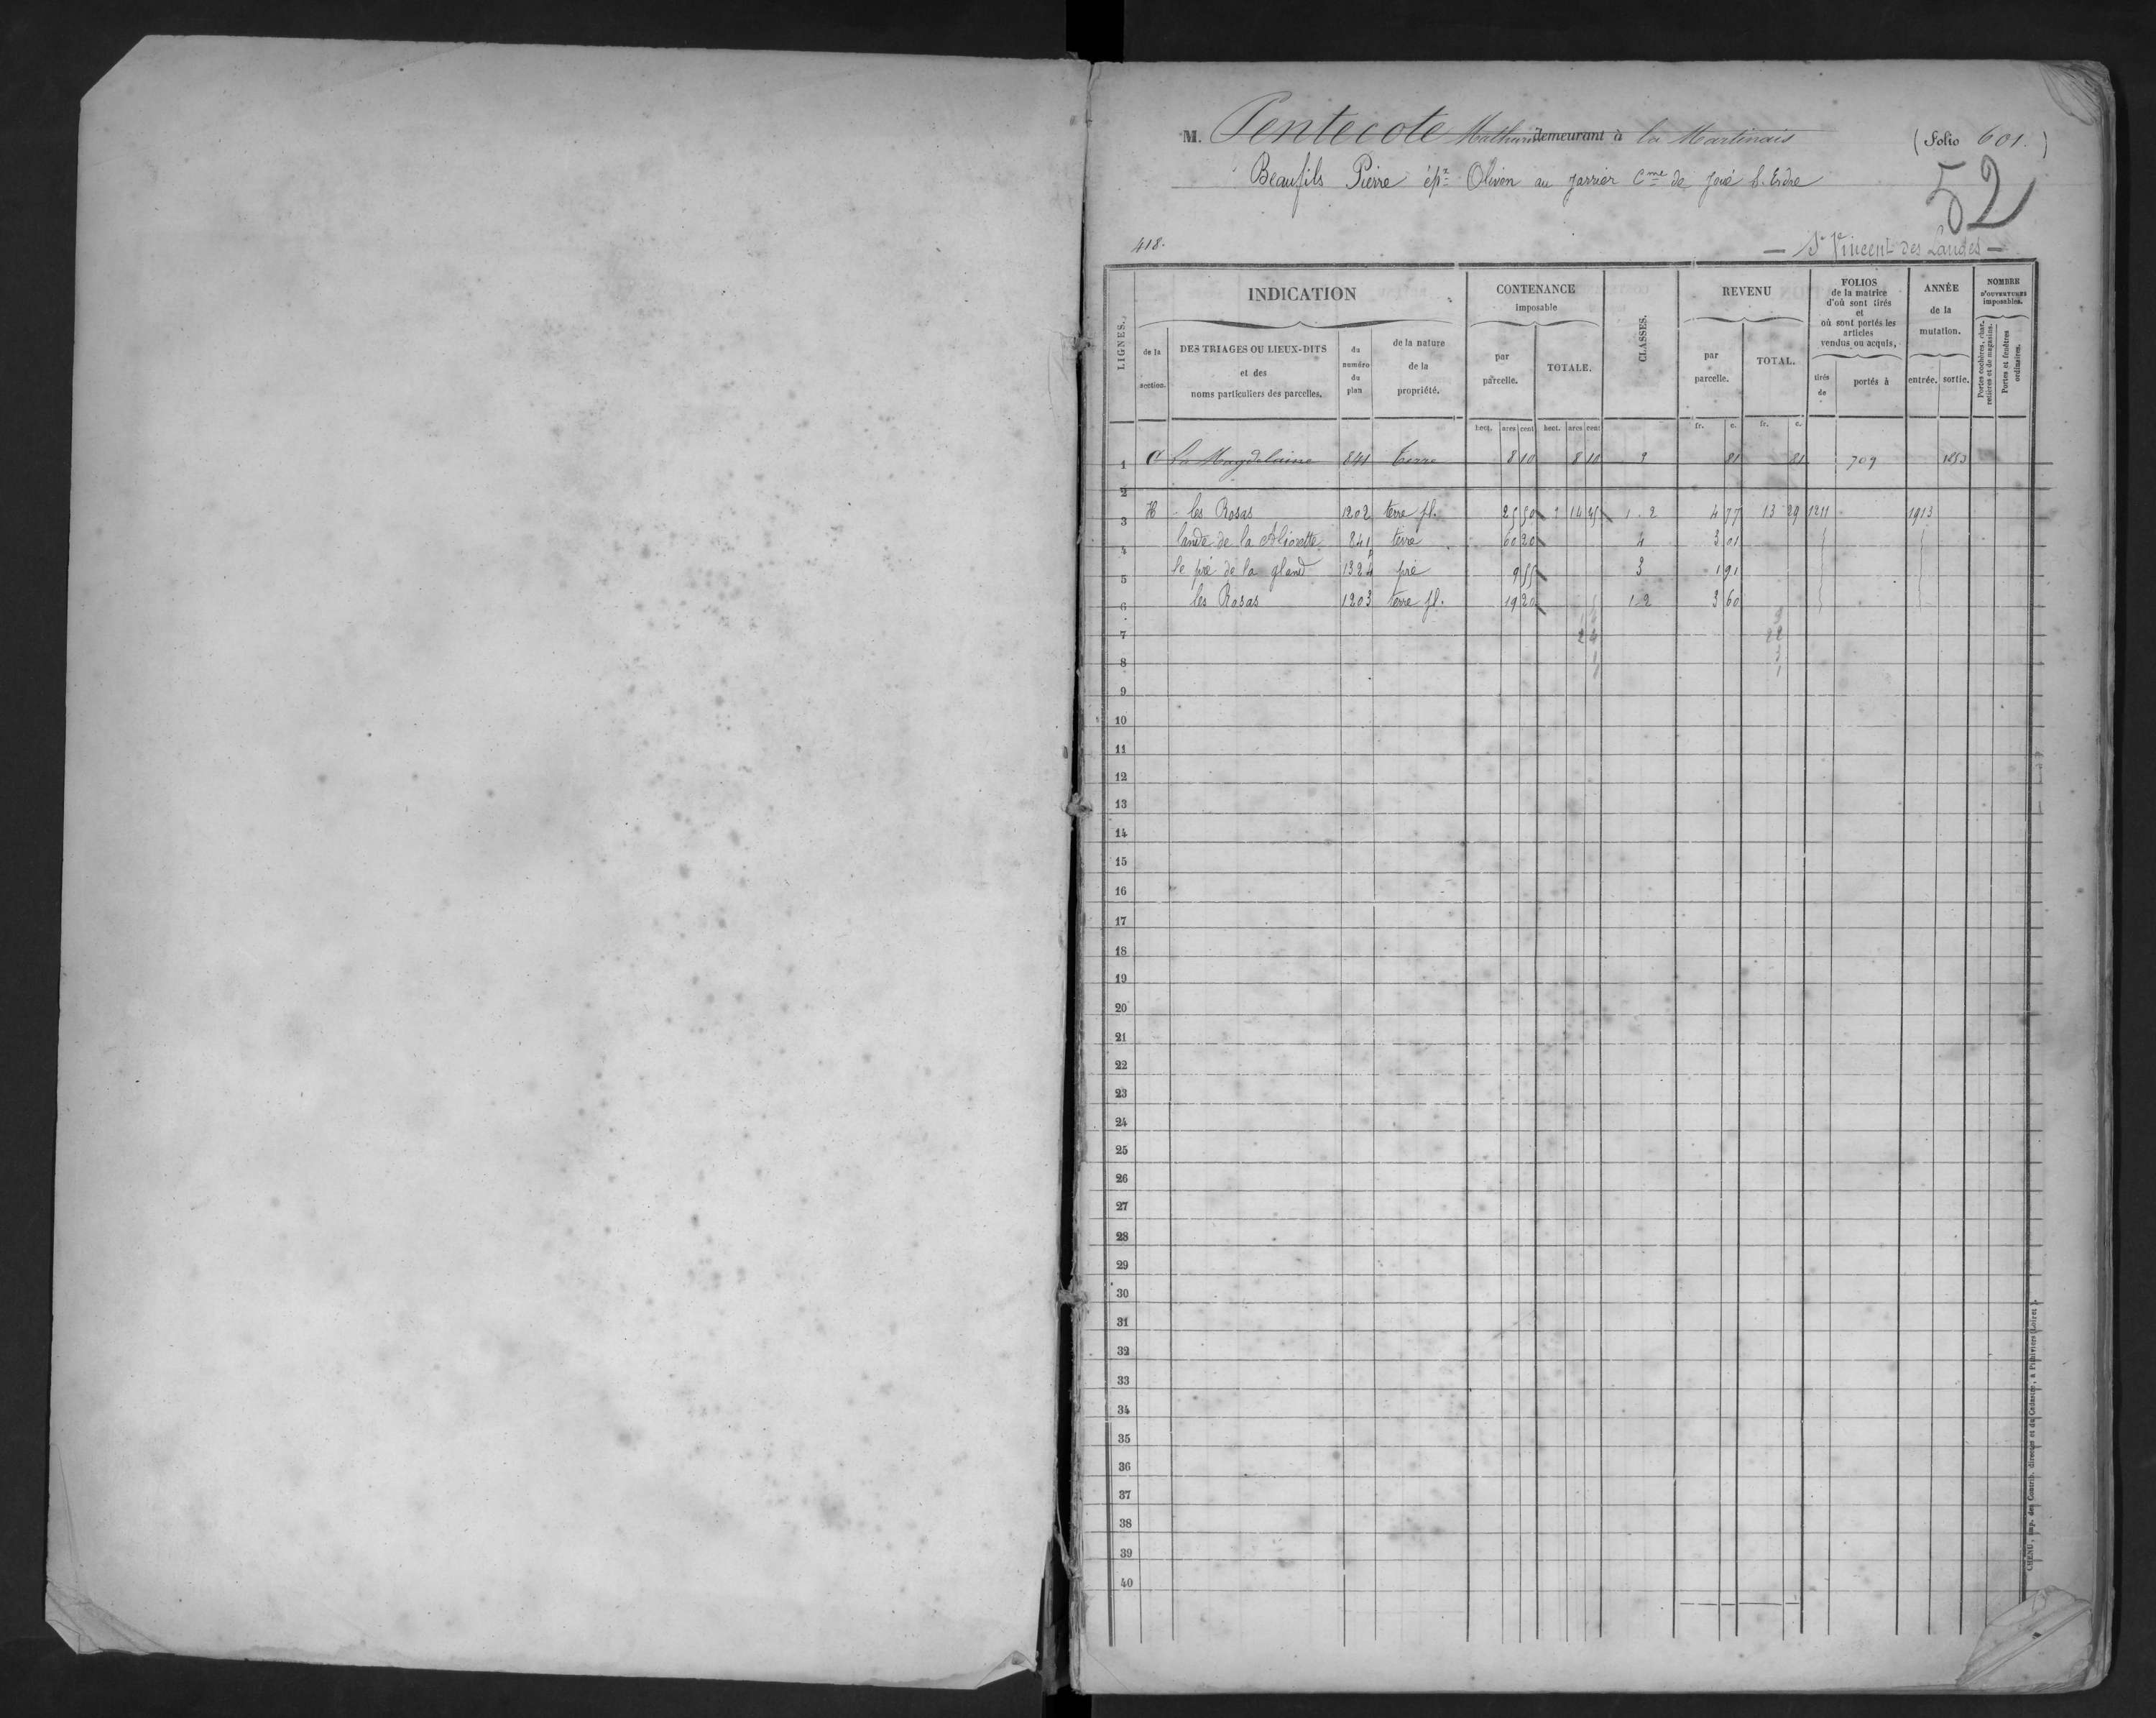 M. Pentecote Mathurin demeurant à la Martinais (Folio 601.)
Beaufils Pierre ép.x Oliven au Jarrier C.me de Joué S. Erdre
52
418.
— St Vincent des Landes —
LIGNES. INDICATION CONTENANCE imposable CLASSES. REVENU FOLIOS de la matrice d'où sont tirés et où sont portés les articles vendus ou acquis. ANNÉE de la mutation. NOMBRE D'OUVERTURES imposables.
de la section. DES TRIAGES OU LIEUX-DITS et des noms particuliers des parcelles. du numéro du plan de la nature de la propriété. par parcelle. TOTALE. par parcelle. TOTAL. tirés de portés à entrée. sortie. Portes cochères, charretières et de magasins. Portes et fenêtres ordinaires.
hect. ares cent hect. ares cent fr. c. fr. c.
1 la Magdelaine 841 Terre 8 10 8 10 81 81 709 1853
2
3 H les Rosas 1202 terre fl. 25 50 1 14 45 1.2 4 77 13 29 1211 1913
4 lande de la 841 terre 60 20 4 3 01
5 le pré de la gland 1324 pré 9 55 3 1 91
6 les Rosas 1203 terre fl. 19 20 1.2 3 60
7
8
9
10
11
12
13
14
15
16
17
18
19
20
21
22
23
24
25
26
27
28
29
30
31
32
33
34
35
36
37
38
39
40
imp. des Contrib. directes et du Cadastre, à Pithiviers (Loiret).